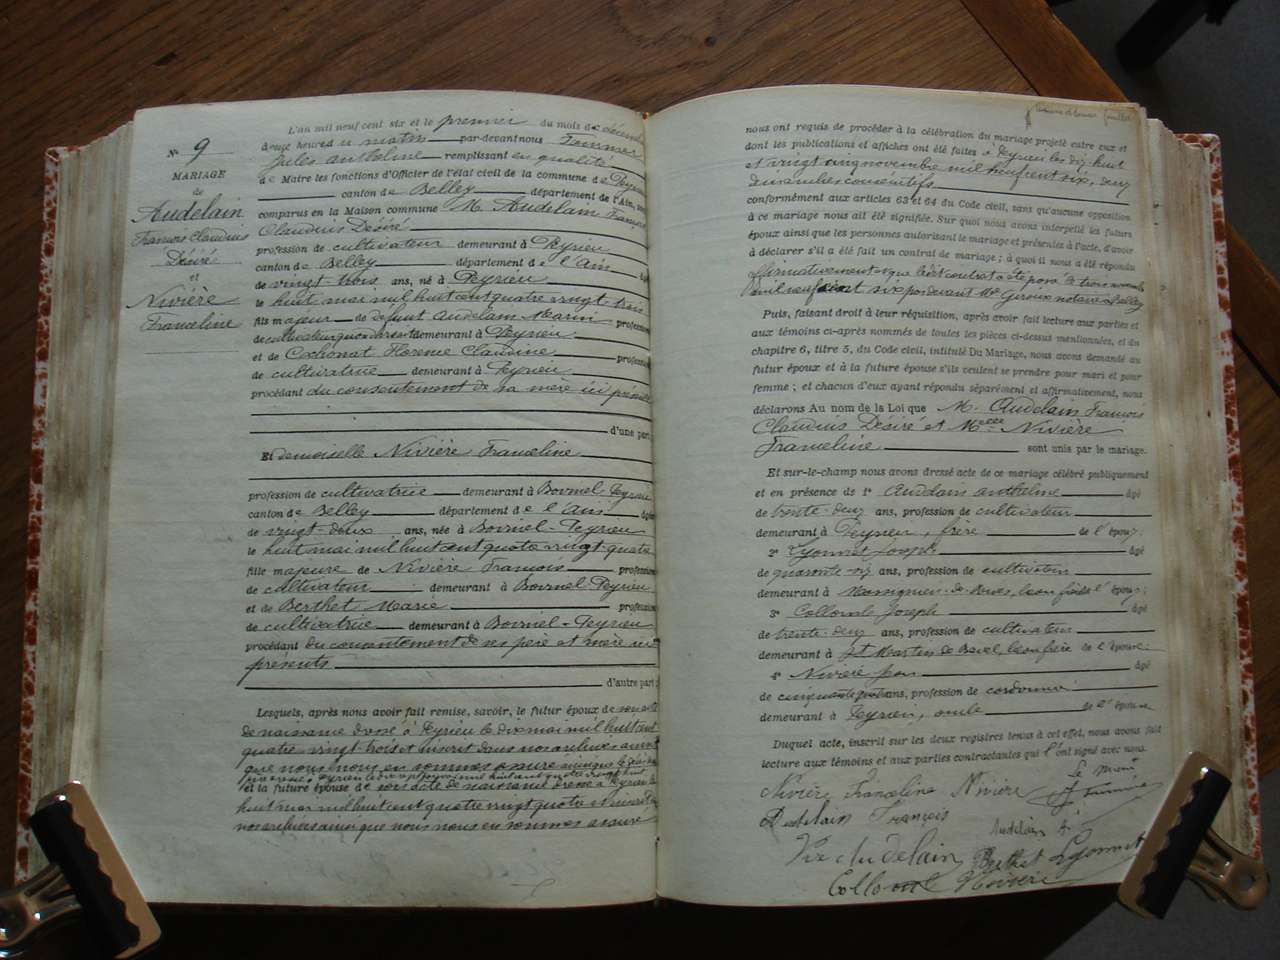 N° 9
MARIAGE
de
Audelain
François Claudius
Désiré
et
Nivière
Franceline
L'an mil neuf cent six et le premier du mois de décembre
heures du matin par-devant nous
Jules anthelme remplissant en qualité
de Maire les fonctions d'Officier de l'état civil de la commune de Peyrieu
canton de Belley département de l'Ain, sont
comparus en la Maison commune M. Audelain François
Claudius Désiré
profession de cultivateur demeurant à Peyrieu
canton de Belley département de l'Ain âgé
de vingt-trois ans, né à Peyrieu
le huit mai mil huit cent quatre vingt trois
fils majeur de défunt Audelain Marin profession
de cultivateur quand vivait demeurant à Peyrieu
et de Claudine profession
de cultivatrice demeurant à Peyrieu
procédant du consentement de sa mère ici présente
d'une part
Et demoiselle Nivière Franceline
profession de cultivatrice demeurant à Peyrieu
canton de Belley département de l'Ain âgée
de vingt-deux ans, née à Peyrieu
le huit mai mil huit cent quatre vingt quatre
fille majeure de Nivière François profession
de cultivateur demeurant à Peyrieu
et de Berthet Marie profession
de cultivatrice demeurant à Peyrieu
procédant du consentement de ses père et mère ici
présents
d'autre part
Lesquels, après nous avoir fait remise, savoir, le futur époux de son acte
de naissance dressé à Peyrieu le dix mai mil huit cent
quatre vingt trois et inscrit dans nos archives ainsi
que nous nous en sommes assuré
et la future épouse de son acte de naissance dressé à Peyrieu le
huit mai mil huit cent quatre vingt quatre et inscrit dans
nos archives ainsi que nous nous en sommes assuré
nous ont requis de procéder à la célébration du mariage projeté entre eux et
dont les publications et affiches ont été faites à Peyrieu les dix huit
et vingt cinq novembre mil neuf cent six, deux
dimanches consécutifs
conformément aux articles 63 et 64 du Code civil, sans qu'aucune opposition
à ce mariage nous ait été signifiée. Sur quoi nous avons interpellé les futurs
époux ainsi que les personnes autorisant le mariage et présentes à l'acte, d'avoir
à déclarer s'il a été fait un contrat de mariage ; à quoi il nous a été répondu
affirmativement et que ledit contrat a été passé le trois novembre
mil neuf cent six par devant Me Giroux notaire à Belley
Puis, faisant droit à leur réquisition, après avoir fait lecture aux parties et
aux témoins ci-après nommés de toutes les pièces ci-dessus mentionnées, et du
chapitre 6, titre 5, du Code civil, intitulé Du Mariage, nous avons demandé au
futur époux et à la future épouse s'ils veulent se prendre pour mari et pour
femme ; et chacun d'eux ayant répondu séparément et affirmativement, nous
déclarons Au nom de la Loi que M. Audelain François
Claudius Désiré et Melle Nivière
Franceline sont unis par le mariage.
Et sur-le-champ nous avons dressé acte de ce mariage célébré publiquement
et en présence de 1° Audelain anthelme âgé
de trente-deux ans, profession de cultivateur
demeurant à Peyrieu, frère de l'époux
2° Lyonnet Joseph âgé
de quarante-six ans, profession de cultivateur
demeurant à Massignieu-de-Rives, beau frère de l'époux ;
3° Collomb Joseph âgé
de trente-deux ans, profession de cultivateur
demeurant à St Martin de Bavel, beau frère de l'épouse ;
4° Nivière âgé
de cinquante ans, profession de cordonnier
demeurant à Peyrieu, oncle de l'épouse
Duquel acte, inscrit sur les deux registres tenus à cet effet, nous avons fait
lecture aux témoins et aux parties contractantes qui l'ont signé avec nous.
Nivière Franceline Nivière Le maire
Audelain François
Audelain A.
Vve Audelain Berthet Lyonnet
Collomb Nivière